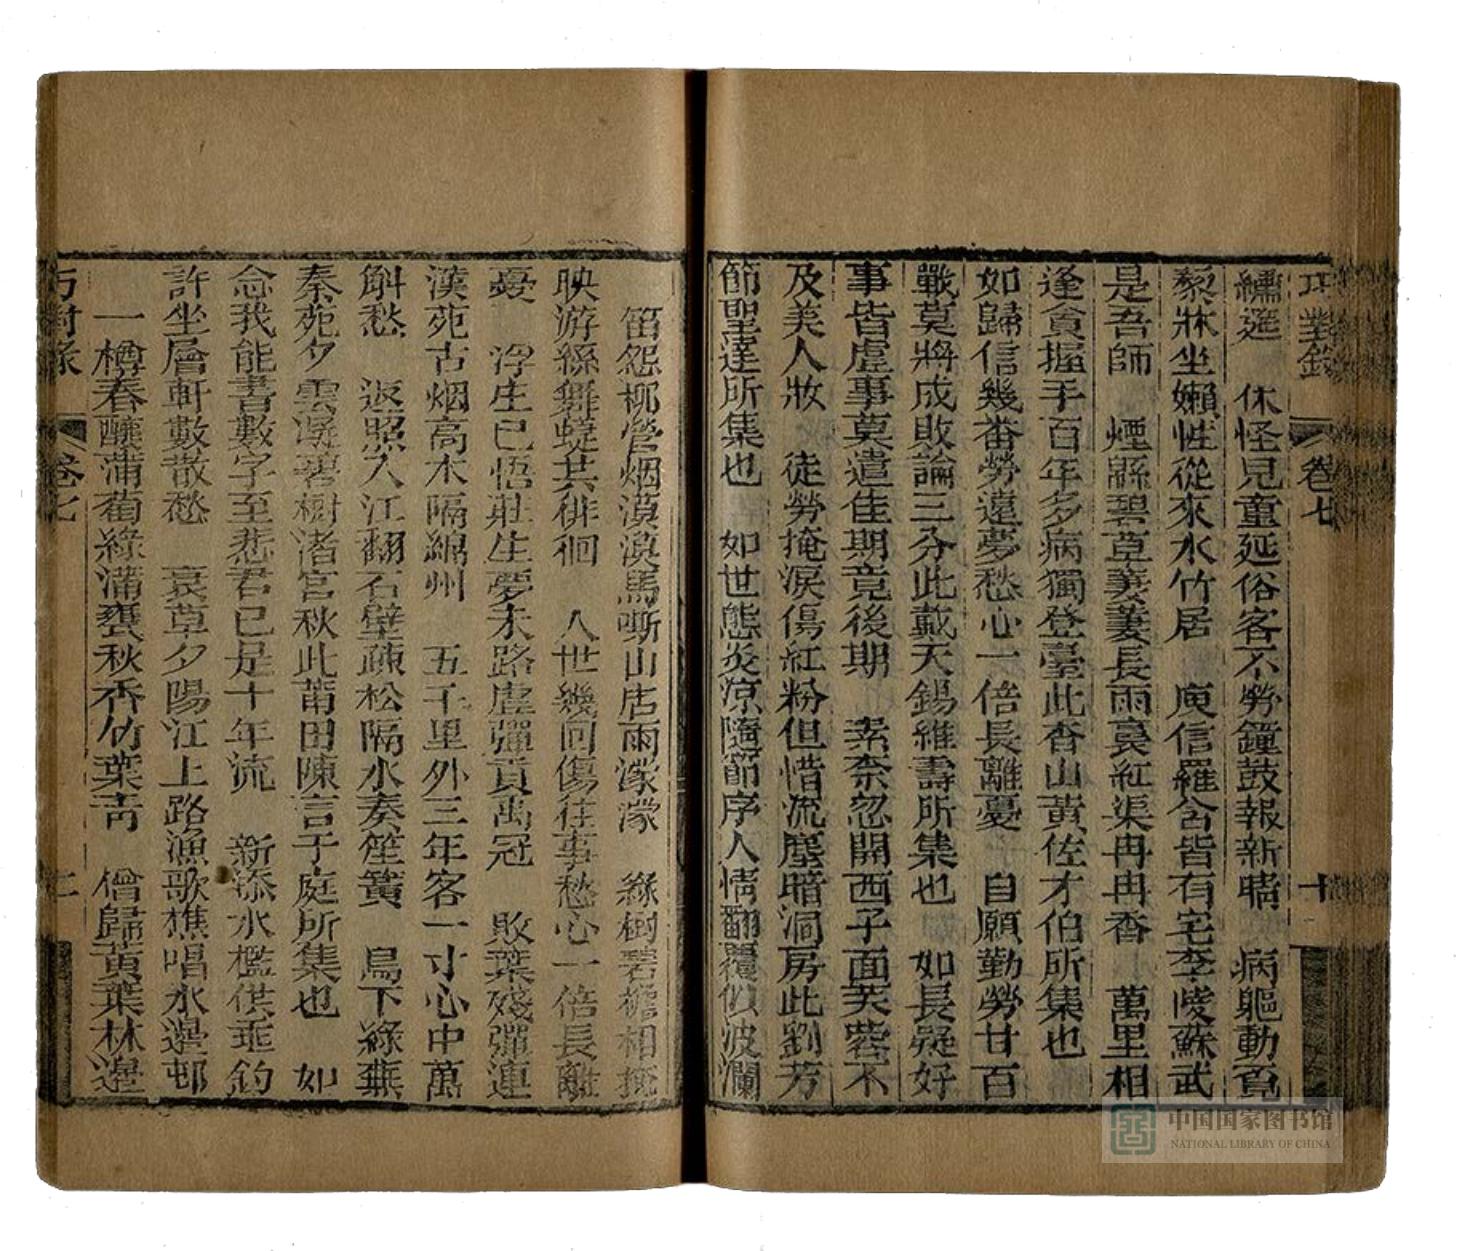 巧對錄 卷七 十
繙迤 休怪兒童延俗客不勞鐘鼓報新晴 病軀動覓
藜牀坐嬾性從來水竹居 庾信羅含皆有宅李陵蘇武
是吾師 煙緜碧草萋萋長雨裛紅渠冉冉香 萬里相
逢貪握手百年多病獨登臺此香山黃佐才伯所集也
如歸信幾番勞遠夢愁心一倍長離憂 自願勤勞甘百
戰莫將成敗論三分此戴天錫維壽所集也 如長疑好
事皆虛事莫遣佳期竟後期 柰柰忽開西子面芙蓉不
及美人妝 徒勞掩淚傷紅粉但惜流塵暗洞房此劉芳
節聖達所集也 如世態炎凉隨節序人情翻覆似波瀾
笛怨柳營烟漠漠馬嘶山店雨濛濛 綠樹碧檐相掩
映游絲舞蜨共徘徊 人世幾回傷往事愁心一倍長離
憂 浮生已悟莊生夢未路虛彈貢禹冠 敗葉殘彈連
漢苑古烟高木隔綿州 五千里外三年客一寸心中萬
斛愁 返照入江翻石壁疎松隔水奏笙簧 鳥下綠蕪
秦苑夕雲凝碧樹渚宮秋此莆田陳言于庭所集也 如
念我能書數字至悲君已是十年流 新添水檻供垂釣
許坐層軒數散愁 衰草夕陽江上路漁歌樵唱水邊邨
一樽春醸蒲萄綠滿甕秋香竹葉靑 僧歸黃葉林邊
巧對錄 卷七 二
中国国家图书馆
NATIONAL LIBRARY OF CHINA